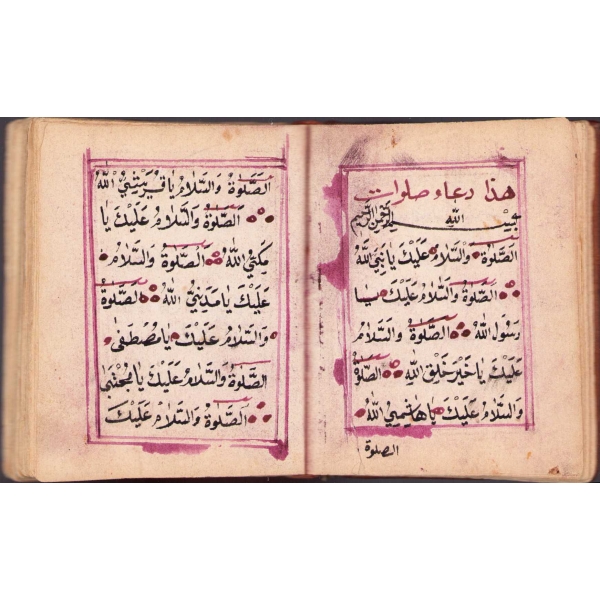 هذا دعاء صلوات
بسم الله الرحمن الرحيم
اَلصَّلوةُ وَالسَّلامُ عَلَيْكَ يَا نَبِىَّ اللّٰهِ
اَلصَّلوةُ وَالسَّلامُ عَلَيْكَ يَا
رَسُولَ اللّٰهِ اَلصَّلوةُ وَالسَّلامُ
عَلَيْكَ يَا خَيْرَ خَلْقِ اللّٰهِ اَلصَّلوةُ
وَالسَّلامُ عَلَيْكَ يَا هَاشِمِىُّ اللّٰهِ
الصلوة
اَلصَّلوةُ وَالسَّلامُ يَا قُرَيْشِىُّ اللّٰهِ
اَلصَّلوةُ وَالسَّلامُ عَلَيْكَ يَا
مَكِّىُّ اللّٰهِ اَلصَّلوةُ وَالسَّلامُ
عَلَيْكَ يَا مَدَنِىُّ اللّٰهِ اَلصَّلوةُ
وَالسَّلامُ عَلَيْكَ يَا مُصْطَفٰى
اَلصَّلوةُ وَالسَّلامُ عَلَيْكَ يَا مُجْتَبٰى
اَلصَّلوةُ وَالسَّلامُ عَلَيْكَ